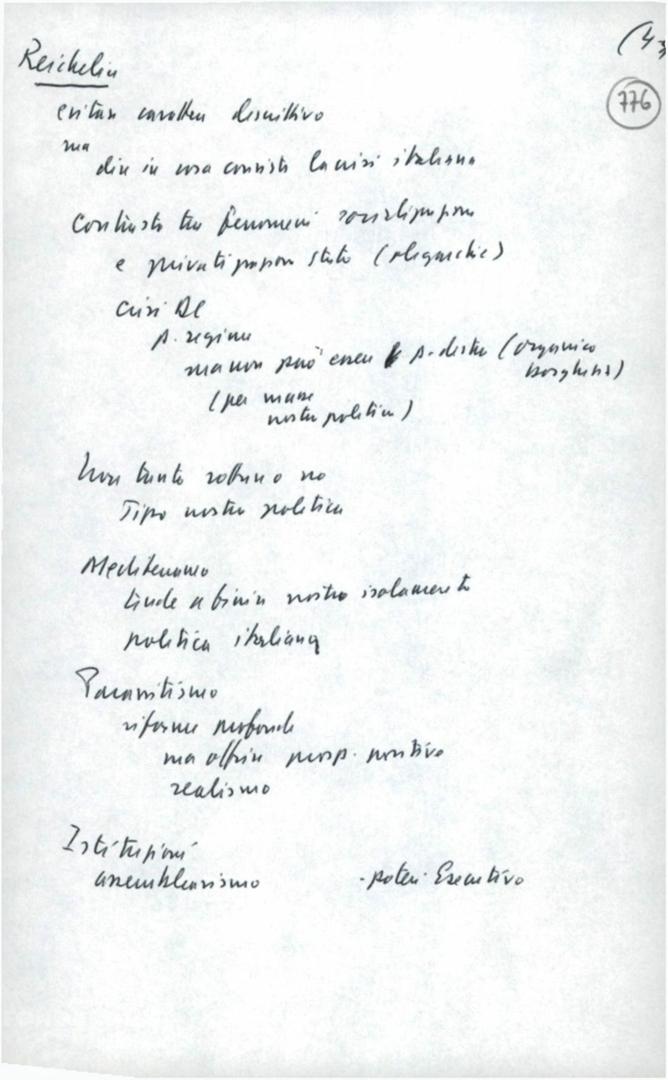 Reichlin
(43
776
evitare carattere descrittivo
ma
dire in cosa consiste la crisi italiana
Contrasto tra fenomeni
e privati stato (oligarchie)
Crisi DC
p. regime
ma non può essere p. destra (organico
borghesia)
(per
nostra politica)
Non tanto no
Tipo nostra politica
Mediterraneo
tende a finire nostro isolamento
politica italiana
Parassitismo
riforme profonde
ma offrire prosp. positive
realismo
Istituzioni
assemblearismo
- poteri Esecutivo